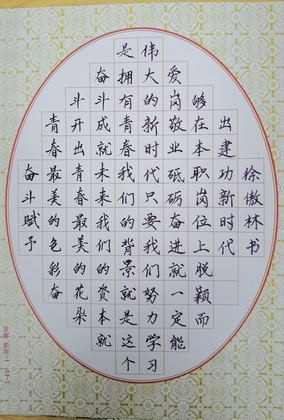 奋斗赋予
青春最美的色彩奋
斗开出青春最美的花朵
奋斗成就未来我们的资本就
是拥有青春我们的背景就是这个
伟大的新时代只要我们努力学习
爱岗敬业砥砺奋进就一定能
够在本职岗位上脱颖而
出建功新时代
徐傲林书